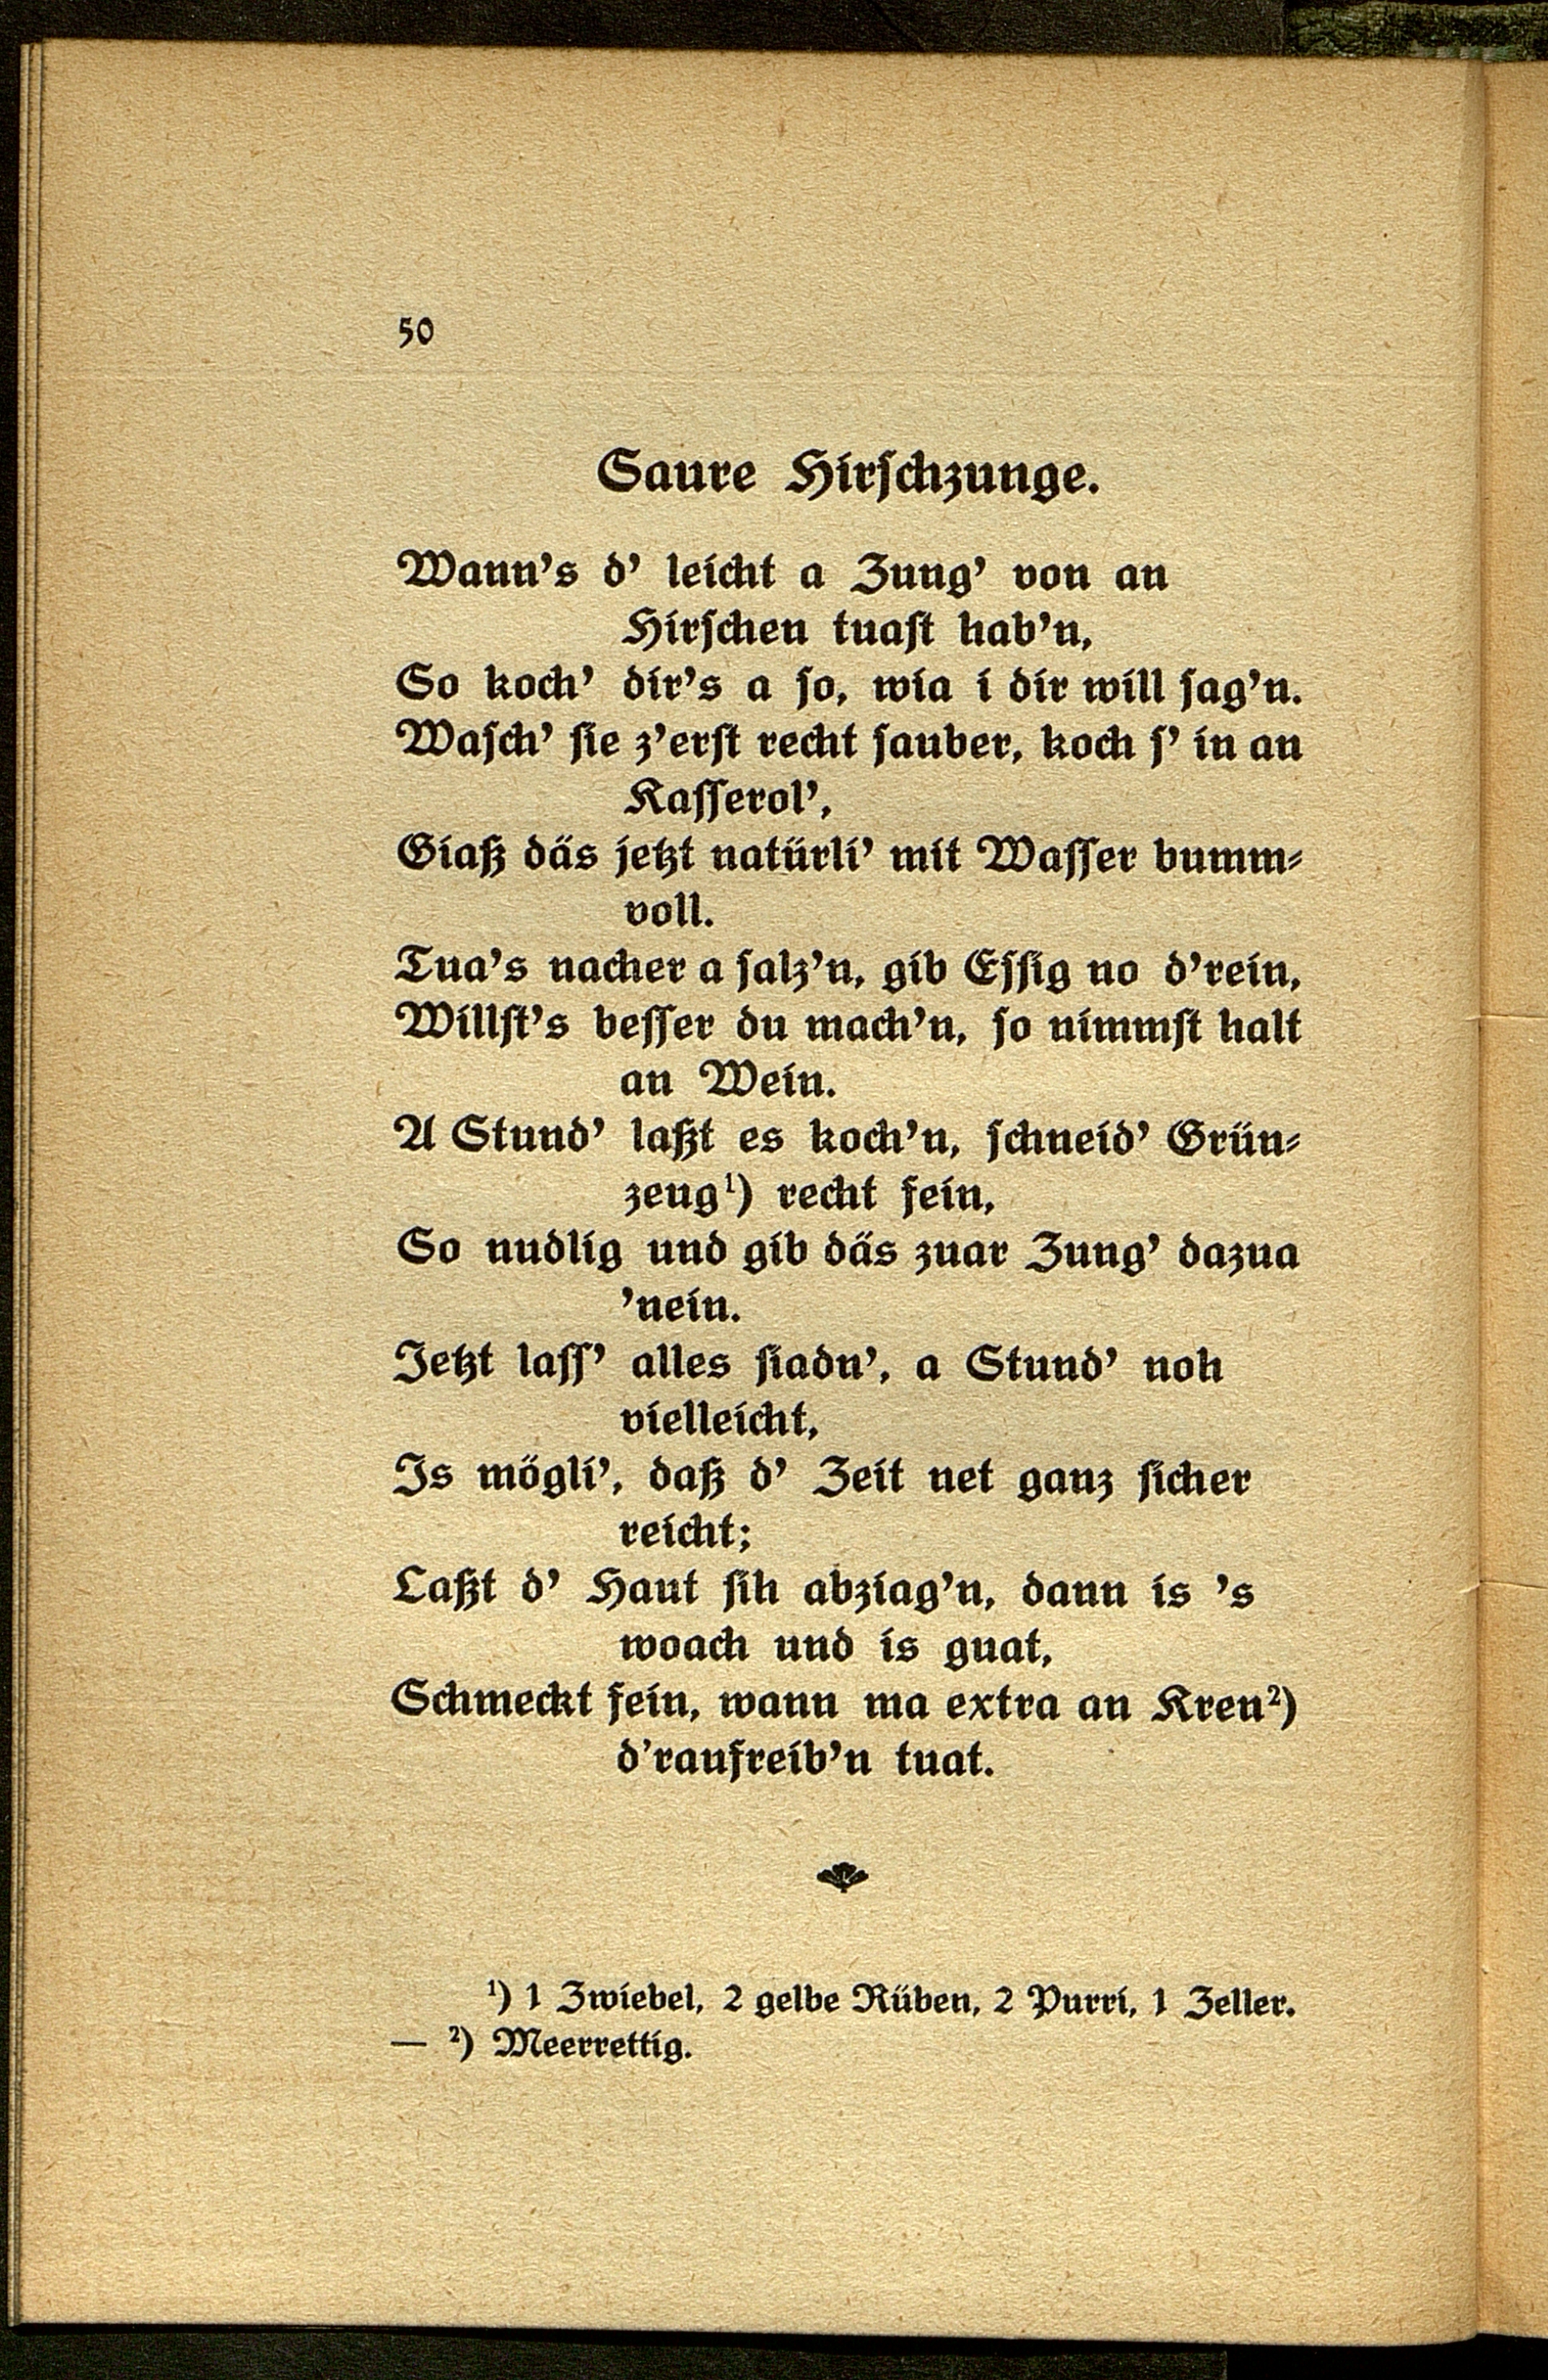 50
Saure Hirschzunge.
Wann's d' leicht a Zung' von an
Hirschen tuast hab'n,
So koch' dir's a so, wia i dir will sag'n.
Wasch' sie z'erst recht sauber, koch s' in an
Kasserol',
Giaß däs jetzt natürli' mit Wasser bumm-
voll.
Tua's nacher a salz'n, gib Essig no d'rein,
Willst's besser du mach'n, so nimmst halt
an Wein.
A Stund' laßt es koch'n, schneid' Grün-
zeug¹) recht fein,
So nudlig und gib däs zuar Zung' dazua
'nein.
Jetzt lass' alles siadn', a Stund' noh
vielleicht,
Is mögli', daß d' Zeit net ganz sicher
reicht;
Laßt d' Haut sih abziag'n, dann is 's
woach und is guat,
Schmeckt fein, wann ma extra an Kren²)
d'raufreib'n tuat.
¹) 1 Zwiebel, 2 gelbe Rüben, 2 Purri, 1 Zeller.
— ²) Meerrettig.